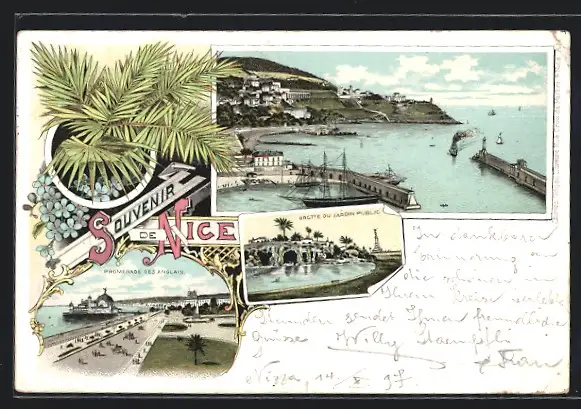 SOUVENIR
DE NICE
GROTTE DU JARDIN PUBLIC
PROMENADE DES ANGLAIS
In dankbarer
Erinnerung an
die schönen in
Ihrem Kreise verlebten
Stunden sendet Ihnen freundliche
Grüsse Willy
& Frau
Nizza, 14 X 97.